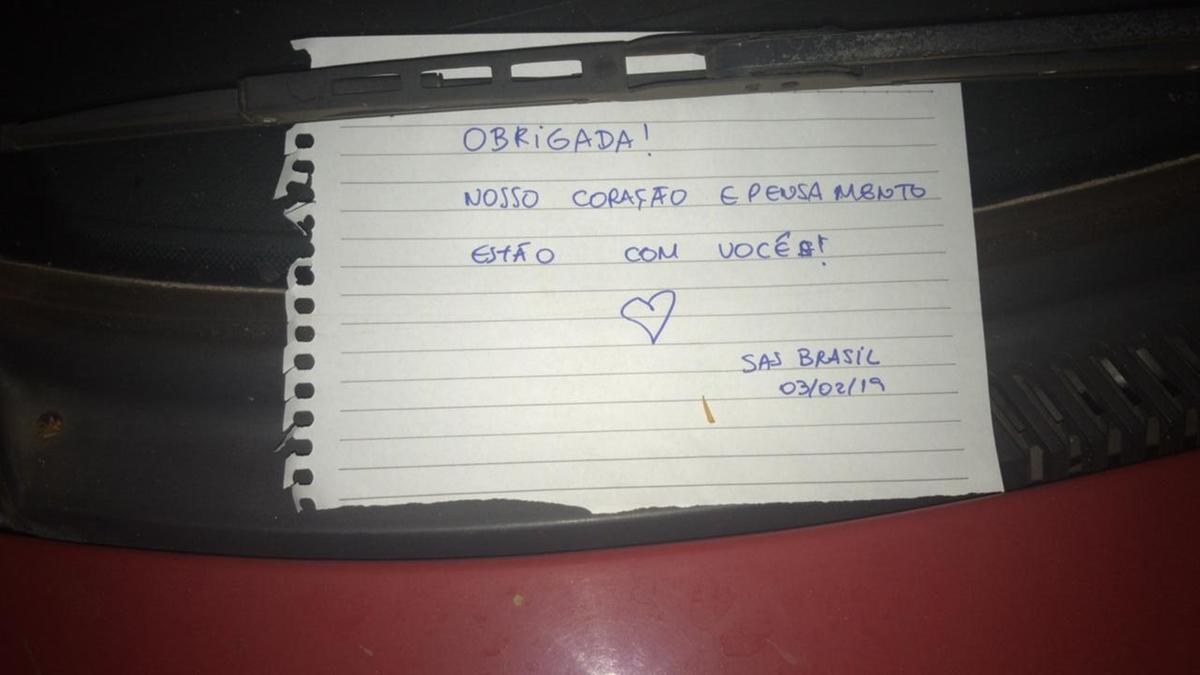 OBRIGADA!
NOSSO CORAÇÃO E PENSAMENTO
ESTÃO COM VOCÊS!
SAS BRASIL
03/02/19